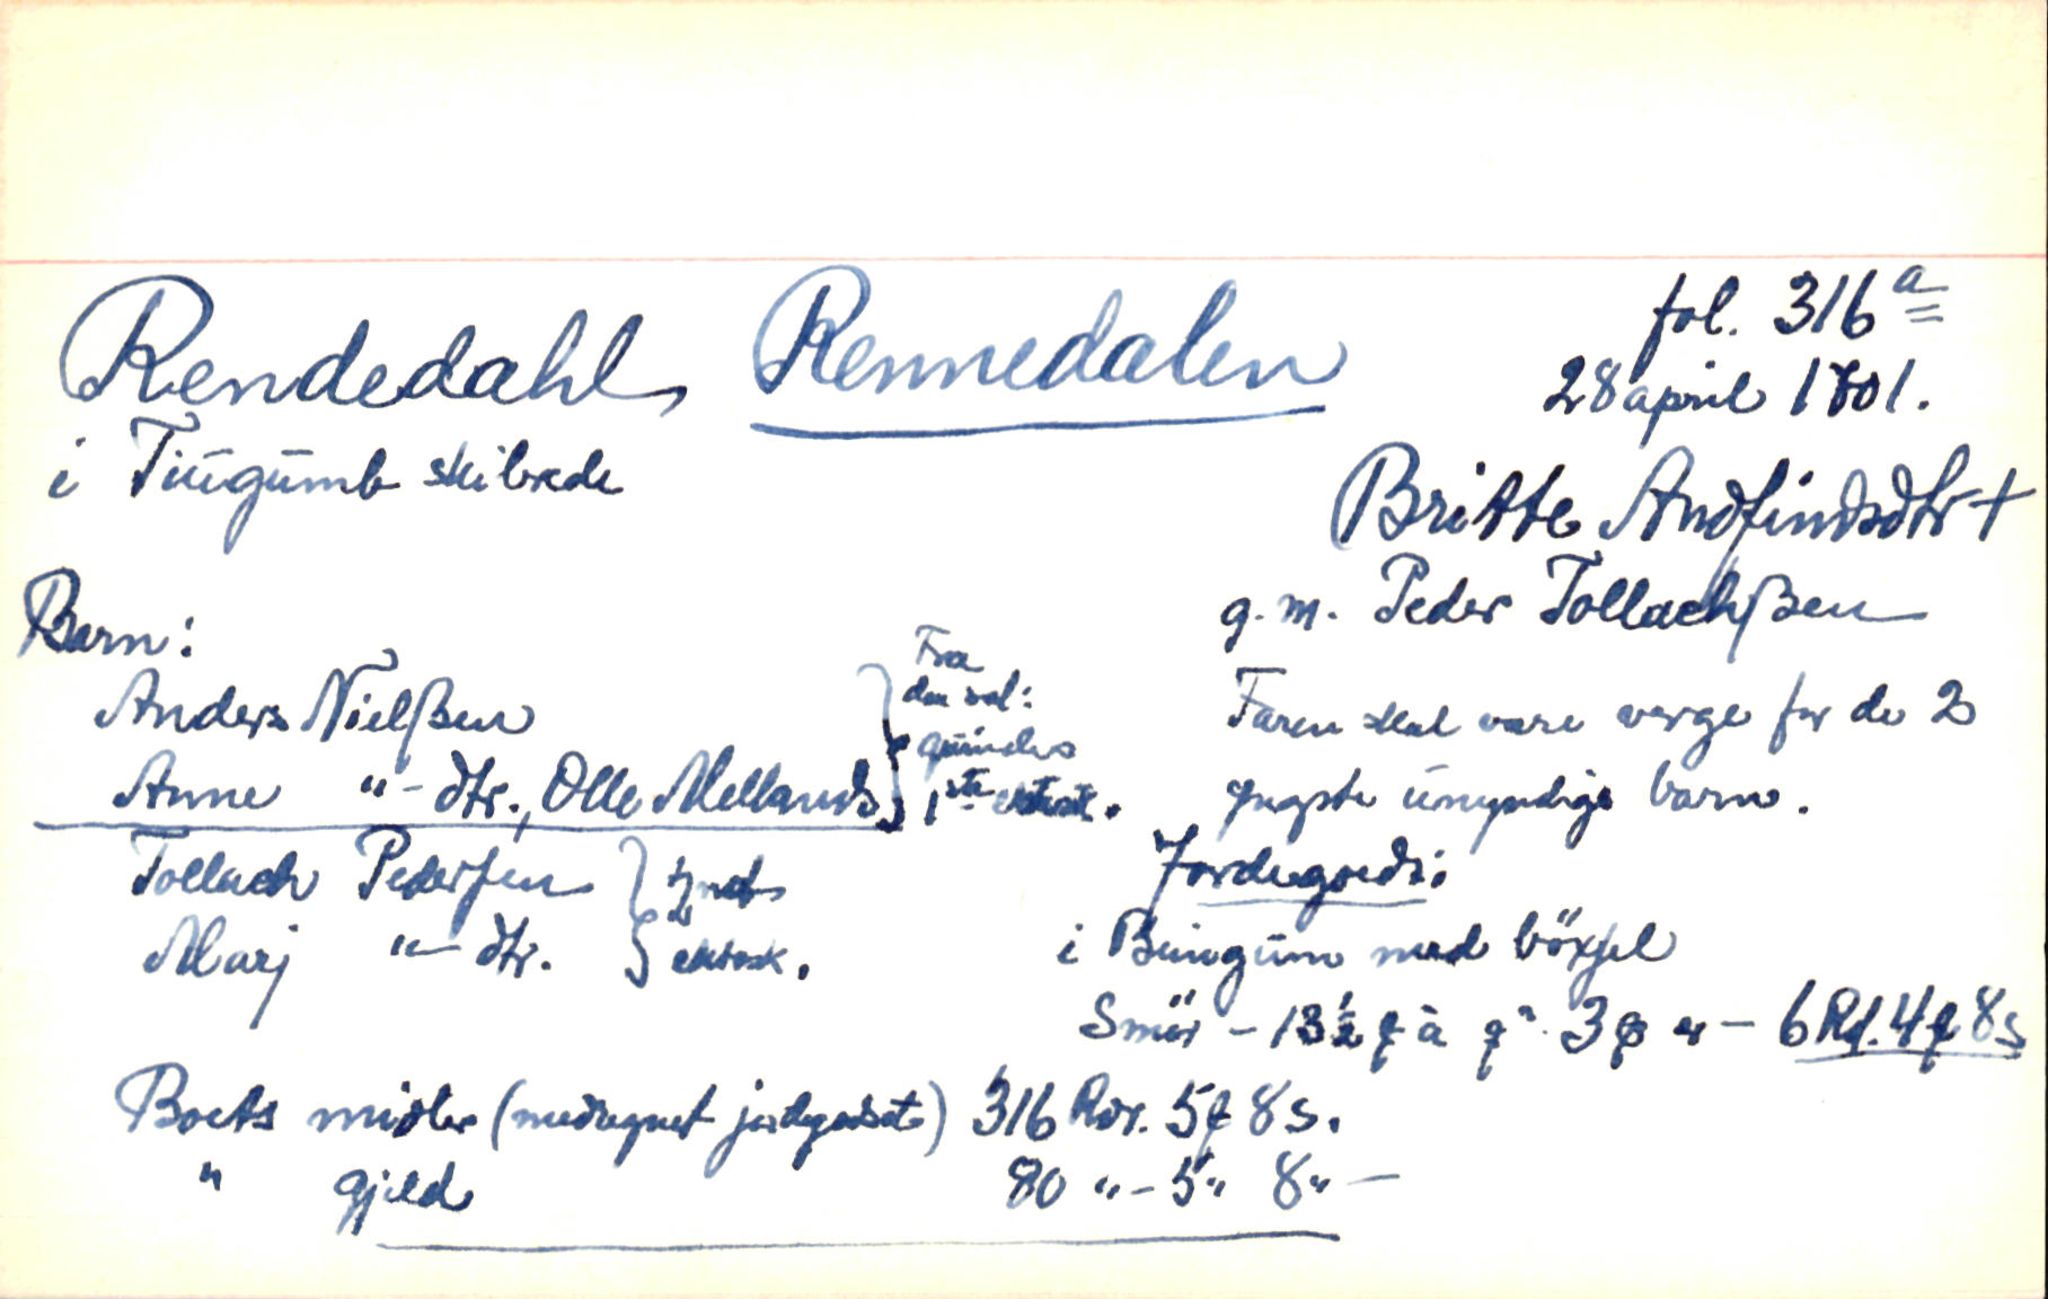 Rendedahl, Rennedalen
fol. 316 a
28 april 1801.
i Tiugumb skibrede
Britte Andfindsdtr +
g. m. Peder Tollachßen
Barn:
Anders Nielßen
Anne "- dtr., Olle Mellands
Fra
den sal:
quindes
1ste ektesk.
Tollach Pedersen
Marj "- dtr.
2net
ektesk.
Faren skal være verge for de 2
yngste umyndige barn.
Jordegoeds:
i Buugum med böxsel
Smör - 13½ à 3 er - 6 Rd. 4 8 s
Boets midler (medregnet jordegodset) 316 Rdr. 5 8 s.
" gjeld 80 "- 5" 8" -